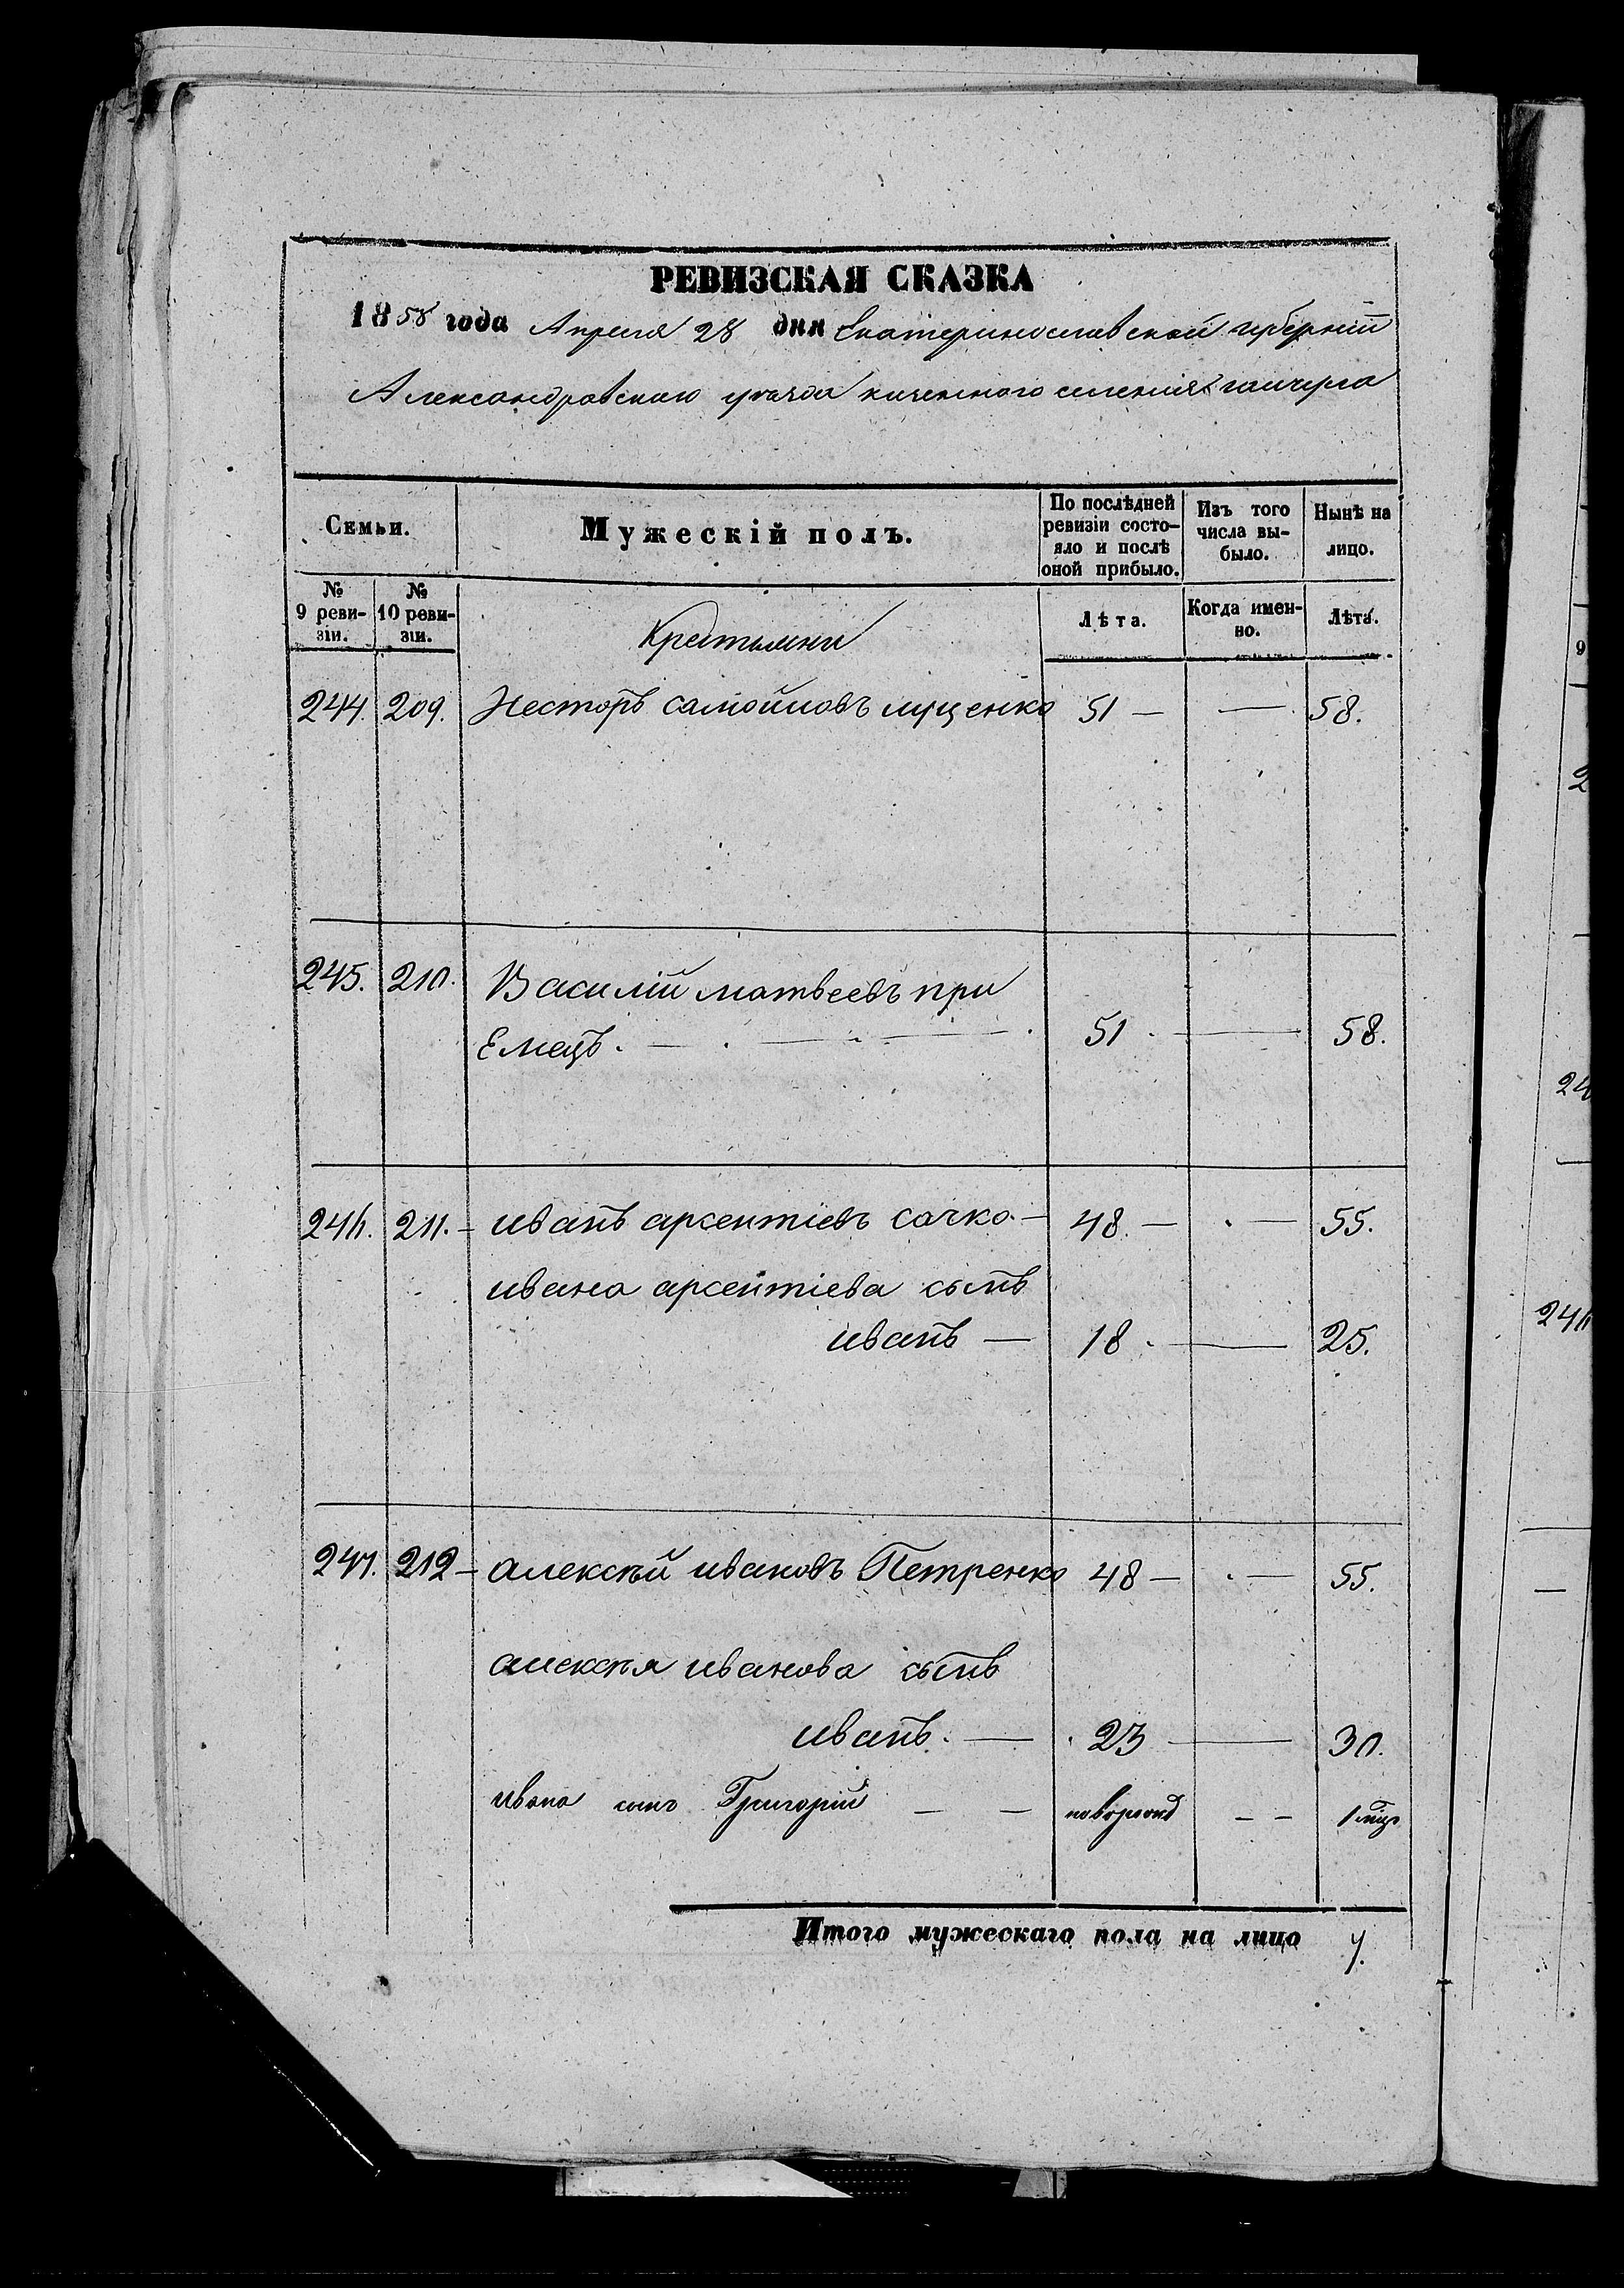 РЕВИЗСКАЯ СКАЗКА
1858 года Апреля 28 дня Екатеринославской губернии
Александровского уѣзда казенного селения гайчула
Семьи. Мужескій полъ. По послѣдней ревизіи состояло и послѣ оной прибыло. Изъ того числа выбыло. Нынѣ на лицо.
№ 9 ревизіи. № 10 ревизіи. Лѣта. Когда именно. Лѣта.
Крестьяне
244. 209. Несторъ самойловъ луценко 51 — — 58.
245. 210. Василій матвеевъ при
Емецъ. — 51 — 58.
246. 211. — иванъ арсентіевъ сачко — 48. — — 55.
ивана арсентіева сынъ
иванъ — 18 — 25.
247. 212 — алексѣй ивановъ Петренко 48 — — 55.
алексѣя иванова сынъ
иванъ. — 23 — 30.
ивана сынъ Григорій — — новорожд — — 1 мѣц
Итого мужескаго пола на лицо 7.
9
2
24
246